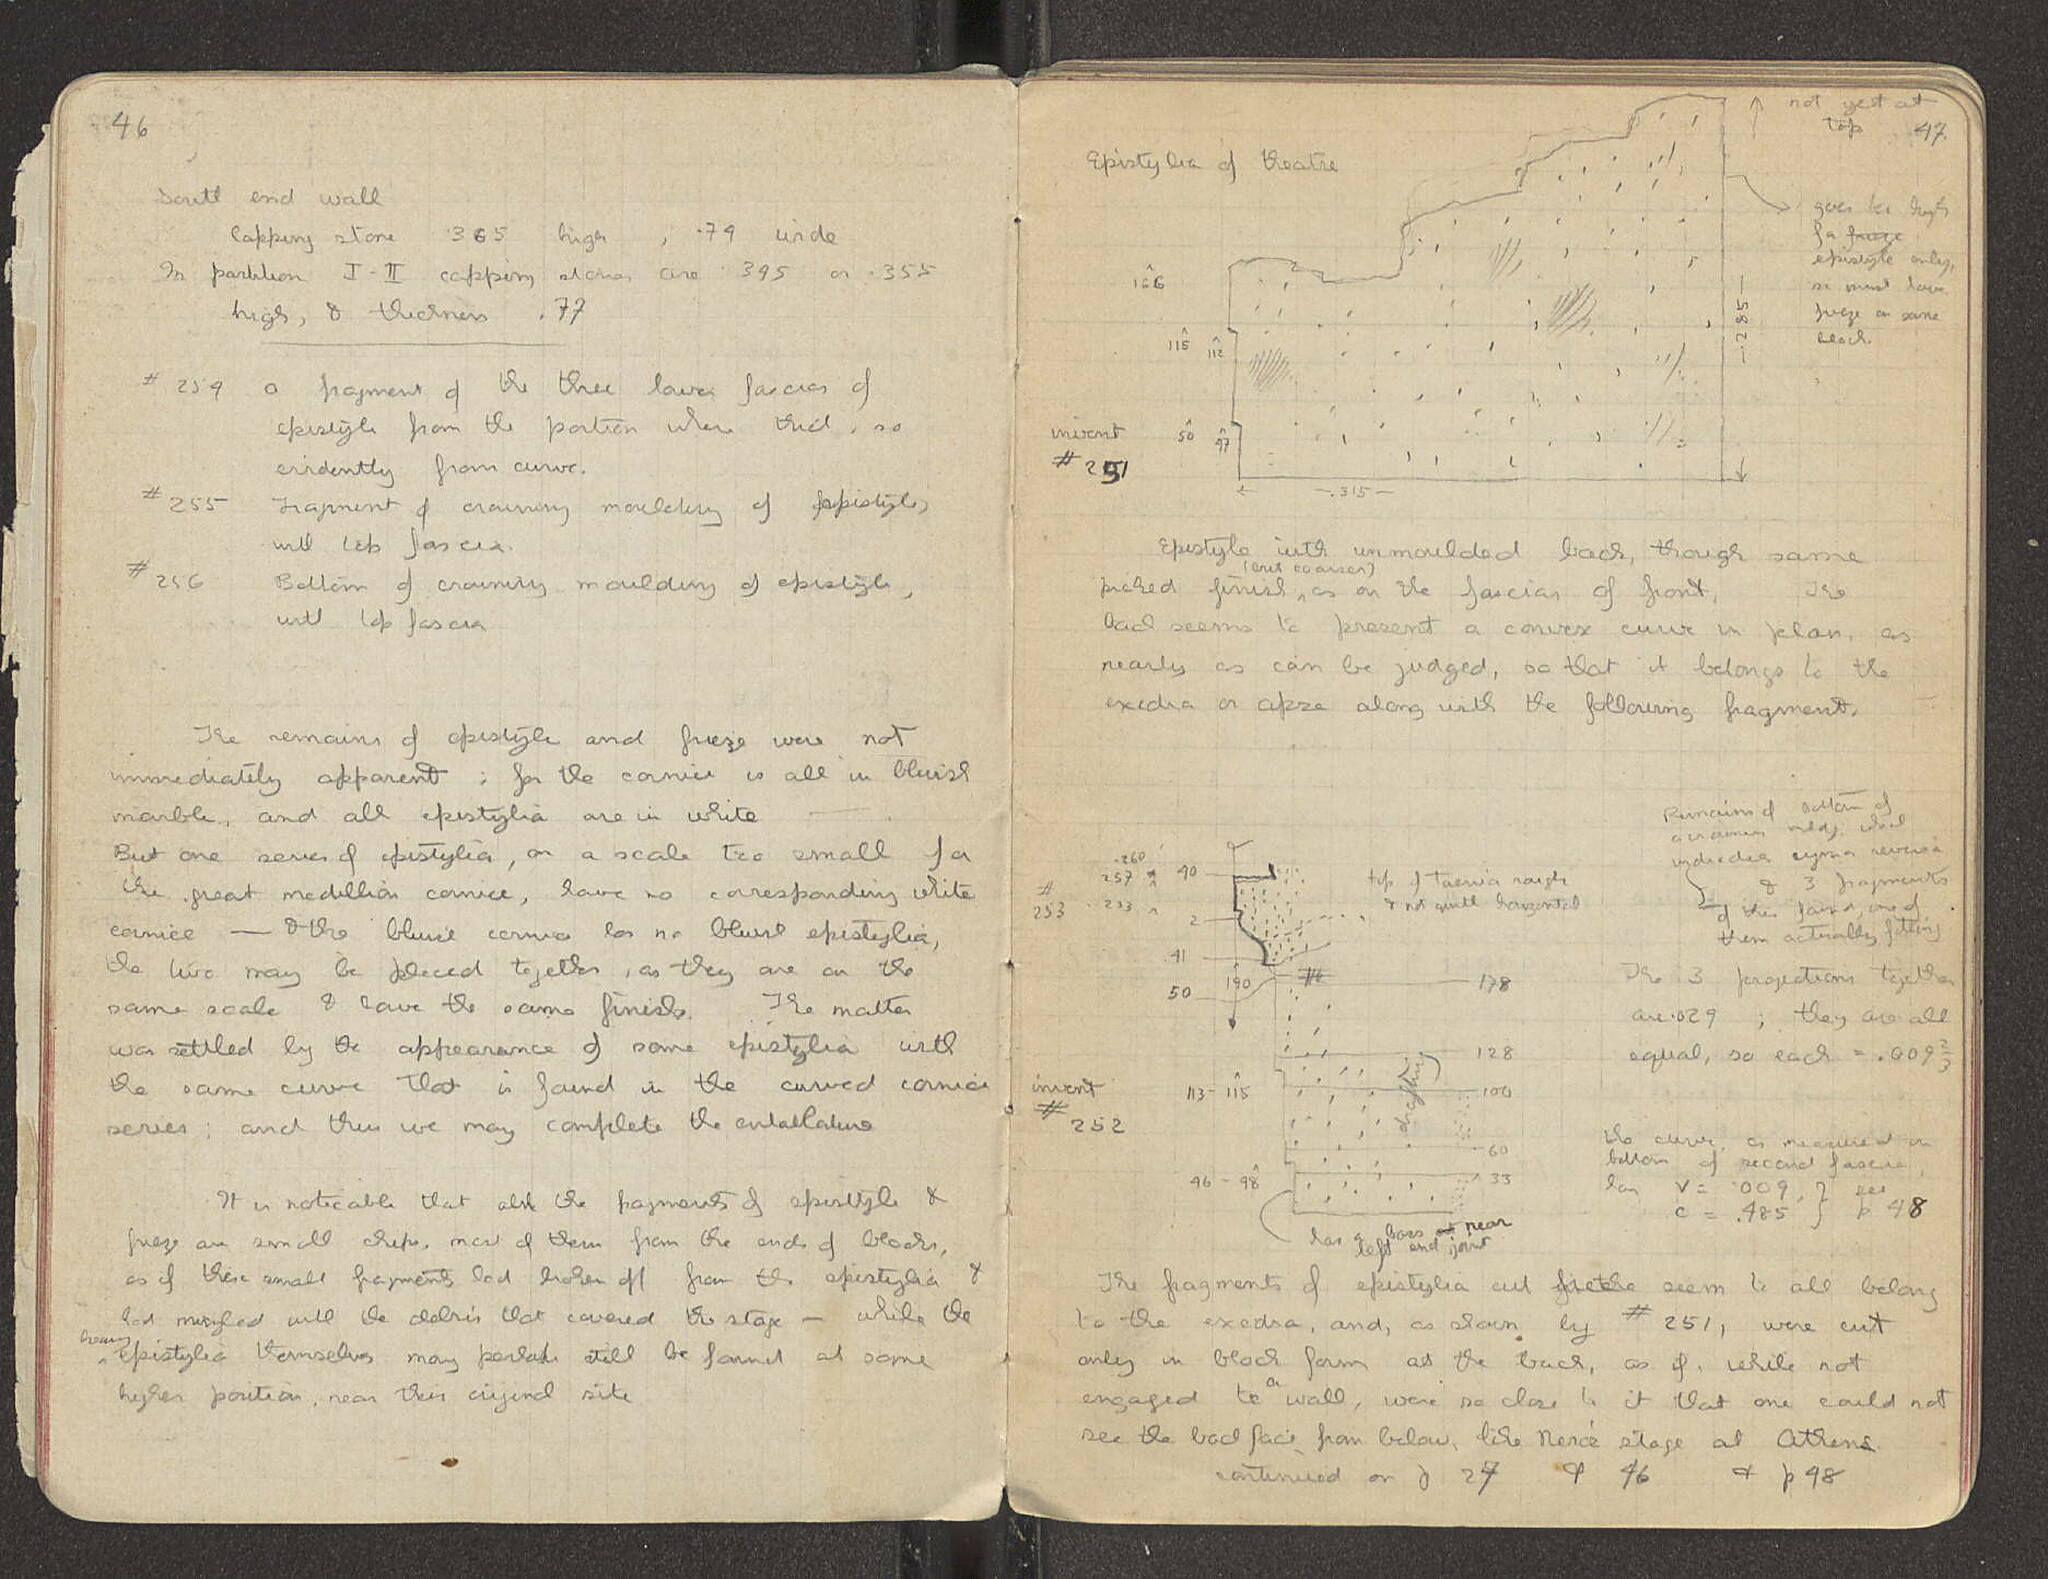 46
South end wall
Capping stone .365 high, .79 wide
In partition I-II capping stones are .395 or .355
high, & thickness .77
# 254 a fragment of the three lower fascias of
epistyle from the portion where third, so
evidently from curve.
# 255 Fragment of crowning moulding of epistyle,
with top fascia.
# 256 Bottom of crowning moulding of epistyle,
with top fascia
The remains of epistyle and frieze were not
immediately apparent; for the cornice is all in bluish
marble, and all epistylia are in white
But one series of epistylia, on a scale too small for
the great medillian cornice, have no corresponding white
cornice — & the bluish cornice has no bluish epistylia,
the two may be placed together, as they are on the
same scale & have the same finish. The matter
was settled by the appearance of some epistylia with
the same curve that is found in the curved cornice
series; and thus we may complete the entablature
It is noticeable that all the fragments of epistyle &
frieze are small chips, most of them from the ends of blocks,
as if these small fragments had broken off from the epistylia &
had mingled with the debris that covered the stage — while the
heavy
epistylia themselves may perhaps still be found at some
higher position, near their original site
not yet at
top 47
Epistylia of theatre
goes too high
for frieze
epistyle only,
so must have
frieze on same
block.
166
115 112
.285
invent
# 251
50 47
.315
Epistyle with unmoulded back, though same
(but coarser)
picked finish, as on the fascias of front. The
back seems to present a convex curve in plan, as
nearly as can be judged, so that it belongs to the
exedra or apse along with the following fragment.
Remains of bottom of
crowning mldg. which
indicates cyma reversa
& 3 fragments
of this found, one of
them actually fitting
.260
257
# 253
233
90
2
41
top of taenia rough
& not quite horizontal
50 190
178
The 3 projections together
are .029; they are all
equal, so each = .009 2/3
128
drafting
invent
# 252
113-115
100
60
46-48
33
the curve, as measured on
bottom of second fascia,
has V = .009, } see
c = .485 } p 48
has a boss at near
left end joint
The fragments of epistylia cut free seem to all belong
to the exedra, and, as shown by # 251, were cut
only in block form at the back, as if, while not
engaged to a wall, were so close to it that one could not
see the back face from below, like Nero's stage at Athens.
continued on p 27 & 46 & p 48